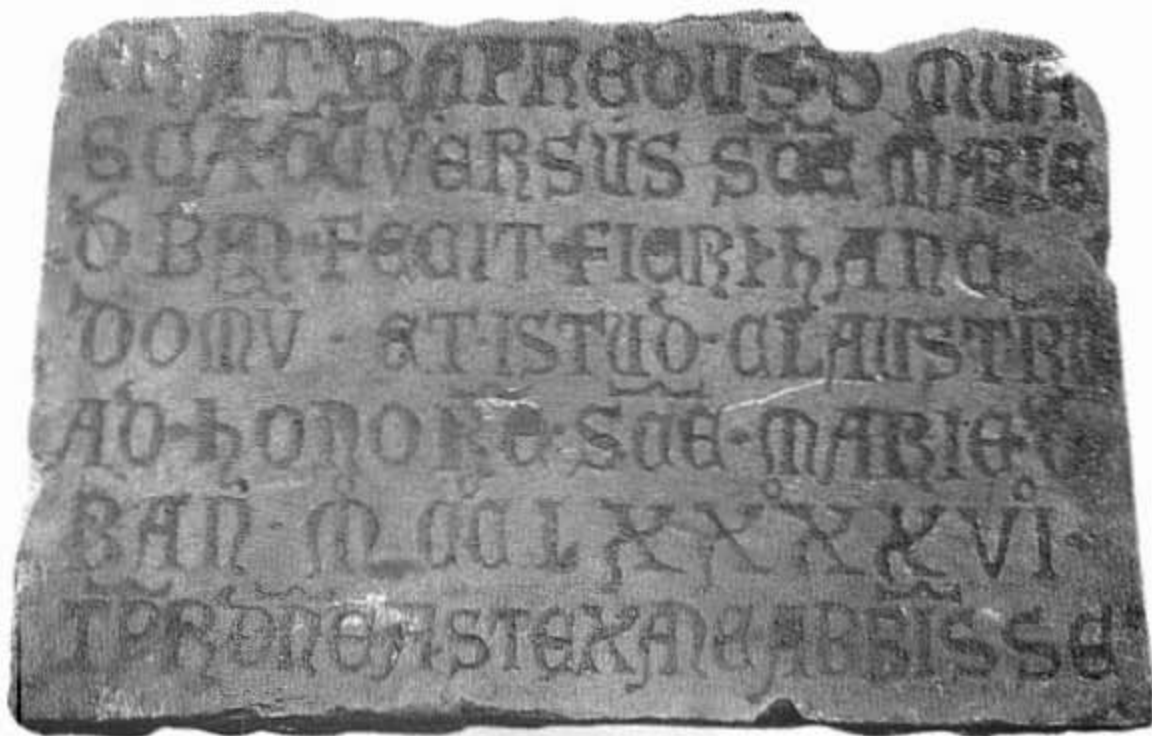 FRAT MAPREDUS D MUR
SCA COVERSUS SCE MARIE
D BAN FECIT FIERI hANC
DOMV · ET ISTUD · CLAUSTRU
AD · hONORE · SCE · MARIE · D
BAN · M CC L XXXX VI ·
TPR DNE ASTEXANE ABBISSE